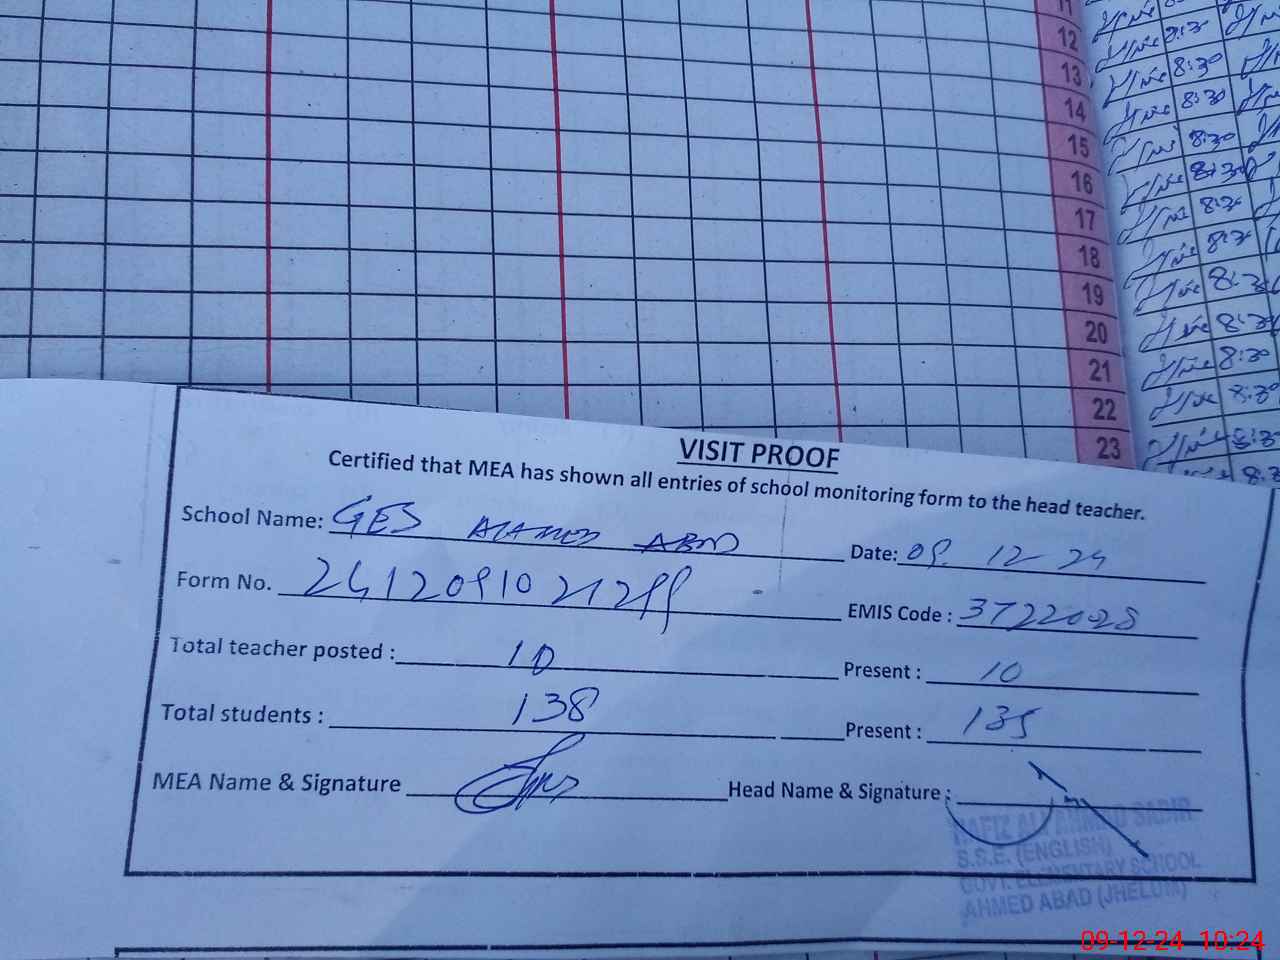 11
12
13
14
15
16
17
18
19
20
21
22
23
8:30
8:30
8:30
8:30
8:30
8:30
8:30
8:30
8:30
8:30
8:30
8:30
VISIT PROOF
Certified that MEA has shown all entries of school monitoring form to the head teacher.
School Name: GES AHMED ABAD Date: 09. 12-24
Form No. 2412091021299 EMIS Code : 37220028
Total teacher posted : 10 Present : 10
Total students : 138 Present : 135
MEA Name & Signature Head Name & Signature :
HAFIZ ALI AHMAD SABIR
S.S.E. (ENGLISH)
GOVT. ELEMENTARY SCHOOL
AHMED ABAD (JHELUM)
09-12-24 10:24